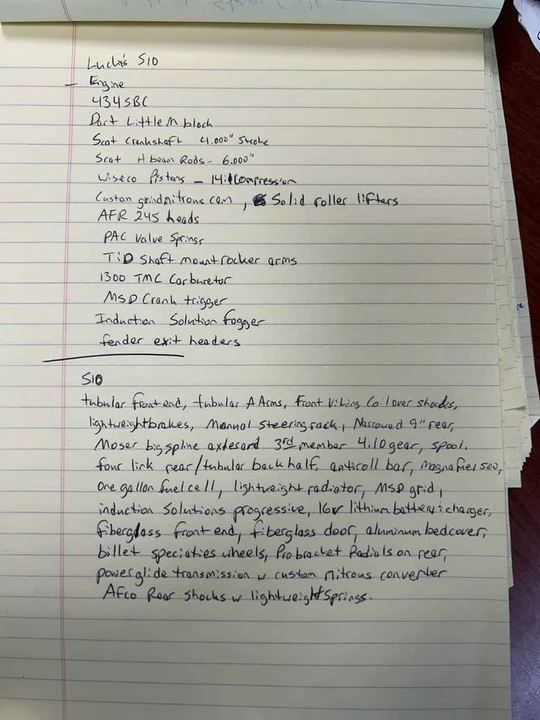 Luchi's S10
Engine
434 SBC
Dart Little M block
Scat Crankshaft 4.000" Stroke
Scat H beam Rods - 6.000"
Wiseco Pistons - 14:1 Compression
Custom grind nitrous cam, Solid roller lifters
AFR 245 heads
PAC Valve Springs
T&D Shaft mount rocker arms
1300 TMC Carburetor
MSD Crank trigger
Induction Solution Fogger
fender exit headers
S10
tubular front end, tubular A Arms, front Viking Coilover shocks,
lightweight brakes, Manual steering rack, Narrowed 9" rear,
Moser big spline axles and 3rd member 4.10 gear, spool.
four link rear/tubular back half, antiroll bar, magnafuel 500,
One gallon fuel cell, lightweight radiator, MSD grid,
induction Solutions progressive, 16v lithium battery: charger,
fiberglass front end, fiberglass door, aluminum bedcover,
billet specialties wheels, Pro bracket Radials on rear,
powerglide transmission w custom nitrous converter
Afco Rear Shocks w lightweight Springs.